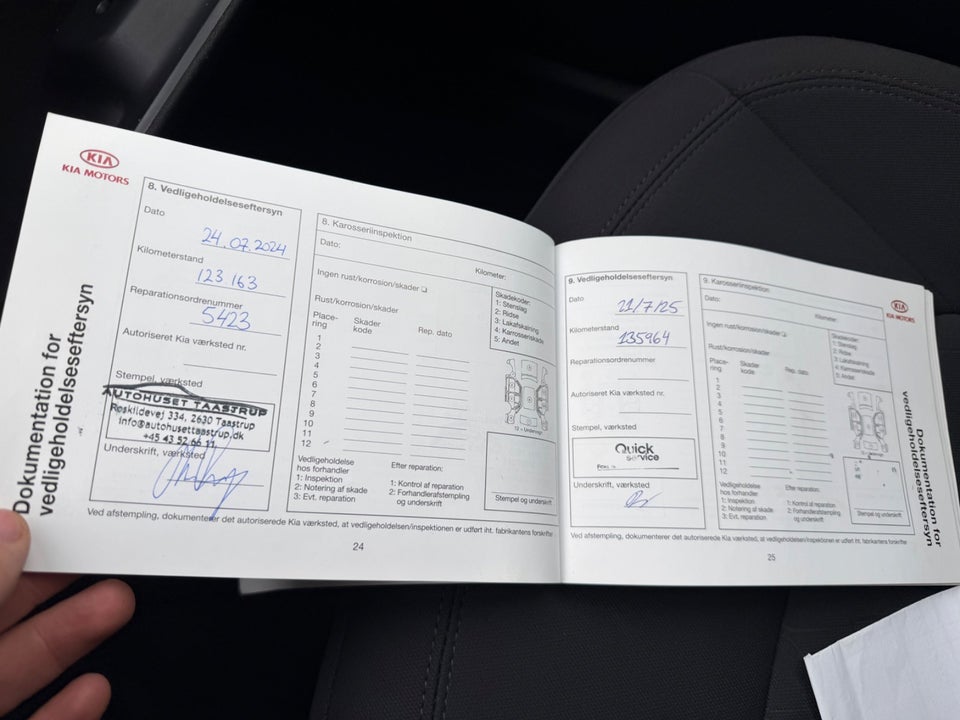 KIA
KIA MOTORS
Dokumentation for
vedligeholdelseseftersyn
8. Vedligeholdelseseftersyn
Dato
24.07.2024
Kilometerstand
123.163
Reparationsordrenummer
5423
Autoriseret Kia værksted nr.
Stempel, værksted
AUTOHUSET TAASTRUP
Roskildevej 334, 2630 Taastrup
info@autohusettaastrup.dk
+45 43 52 66 11
Underskrift, værksted
8. Karosseriinspektion
Dato:
Kilometer:
Ingen rust/korrosion/skader
Rust/korrosion/skader
Skadekoder:
1: Stenslag
2: Ridse
3: Lakafskalning
4: Karrosseriskade
5: Andet
Place-
ring
Skader
kode
Rep. dato
1
2
3
4
5
6
7
8
9
10
11
12
12 = Undervogn
Vedligeholdelse
hos forhandler
1: Inspektion
2: Notering af skade
3: Evt. reparation
Efter reparation:
1: Kontrol af reparation
2: Forhandlerafstampling
og underskrift
Stempel og underskrift
Ved afstempling, dokumenterer det autoriserede Kia værksted, at vedligeholdelsen/inspektionen er udført iht. fabrikantens forskrifter
24
9. Vedligeholdelseseftersyn
Dato
21/7/25
Kilometerstand
135964
Reparationsordrenummer
Autoriseret Kia værksted nr.
Stempel, værksted
Quick
service
Underskrift, værksted
9. Karosseriinspektion
Dato:
Kilometer:
Ingen rust/korrosion/skader
Rust/korrosion/skader
Skadekoder:
1: Stenslag
2: Ridse
3: Lakafskalning
4: Karrosseriskade
5: Andet
Place-
ring
Skader
kode
Rep. dato
1
2
3
4
5
6
7
8
9
10
11
12
Vedligeholdelse
hos forhandler
1: Inspektion
2: Notering af skade
3: Evt. reparation
Efter reparation:
1: Kontrol af reparation
2: Forhandlerafstampling
og underskrift
Stempel og underskrift
Ved afstempling, dokumenterer det autoriserede Kia værksted, at vedligeholdelsen/inspektionen er udført iht. fabrikantens forskrifter
25
KIA
KIA MOTORS
Dokumentation for
vedligeholdelseseftersyn